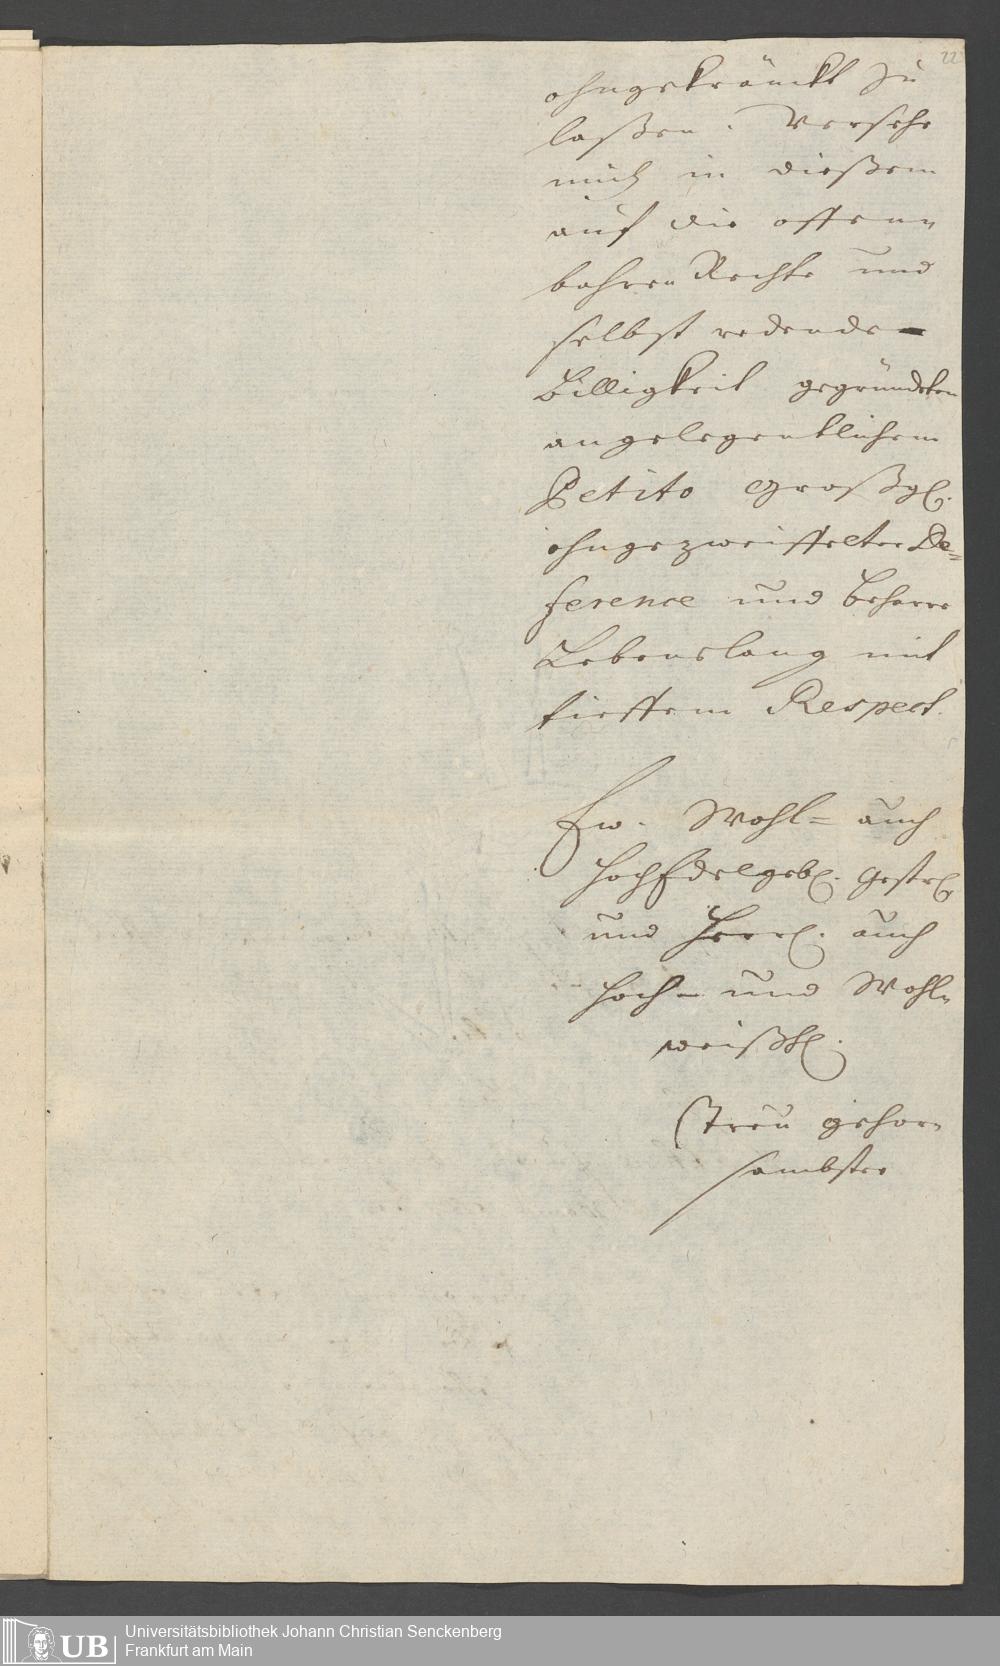 22
ohngekränckt zu
laßen. Versehe
mich in dießem
auf die offen=
bahren Rechte und
selbst redende
Billigkeit gegründeten
angelegentlichem
Petito Großgl.
ohngezweiffelter De=
ference und beharre
Lebenslang mit
tieffem Respect.
Ew. Wohl= auch
HochEdelgeb. Gestr.
und Herrl. auch
Hoch- und Wohl=
weißh.
treu gehor=
sambster
UB
Universitätsbibliothek Johann Christian Senckenberg
Frankfurt am Main